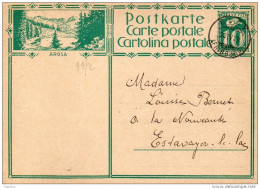 Postkarte
Carte postale
Cartolina postale
10
AROSA
Madame
Louise
à la
Estavayer-le-Lac